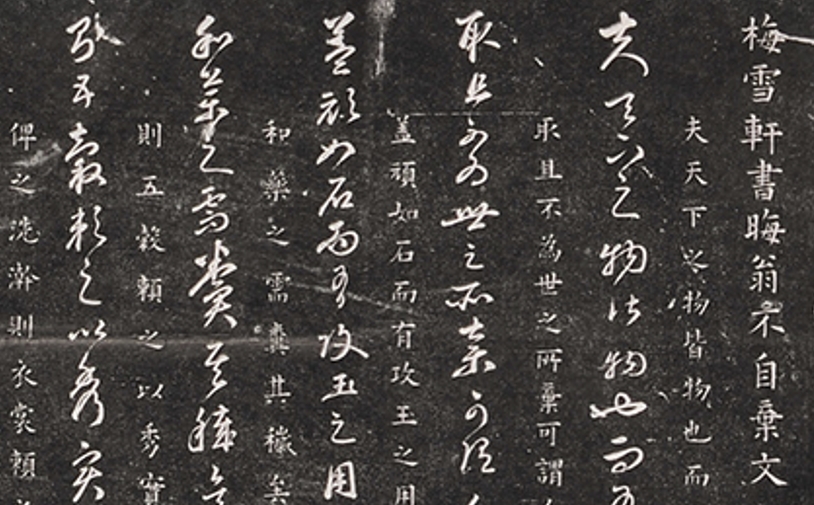 梅雪軒書晦翁不自棄文
夫天下之物皆物也而
夫天下之物皆物也而有
取且不為世之所棄可謂
取且不為世之所棄可謂
蓋頑如石而有攻玉之用
蓋頑如石而有攻玉之用
和藥之需糞其穢矣
和藥之需糞其穢矣
則五穀賴之以秀實
則五穀賴之以秀實
俾之洗澣則衣裳賴